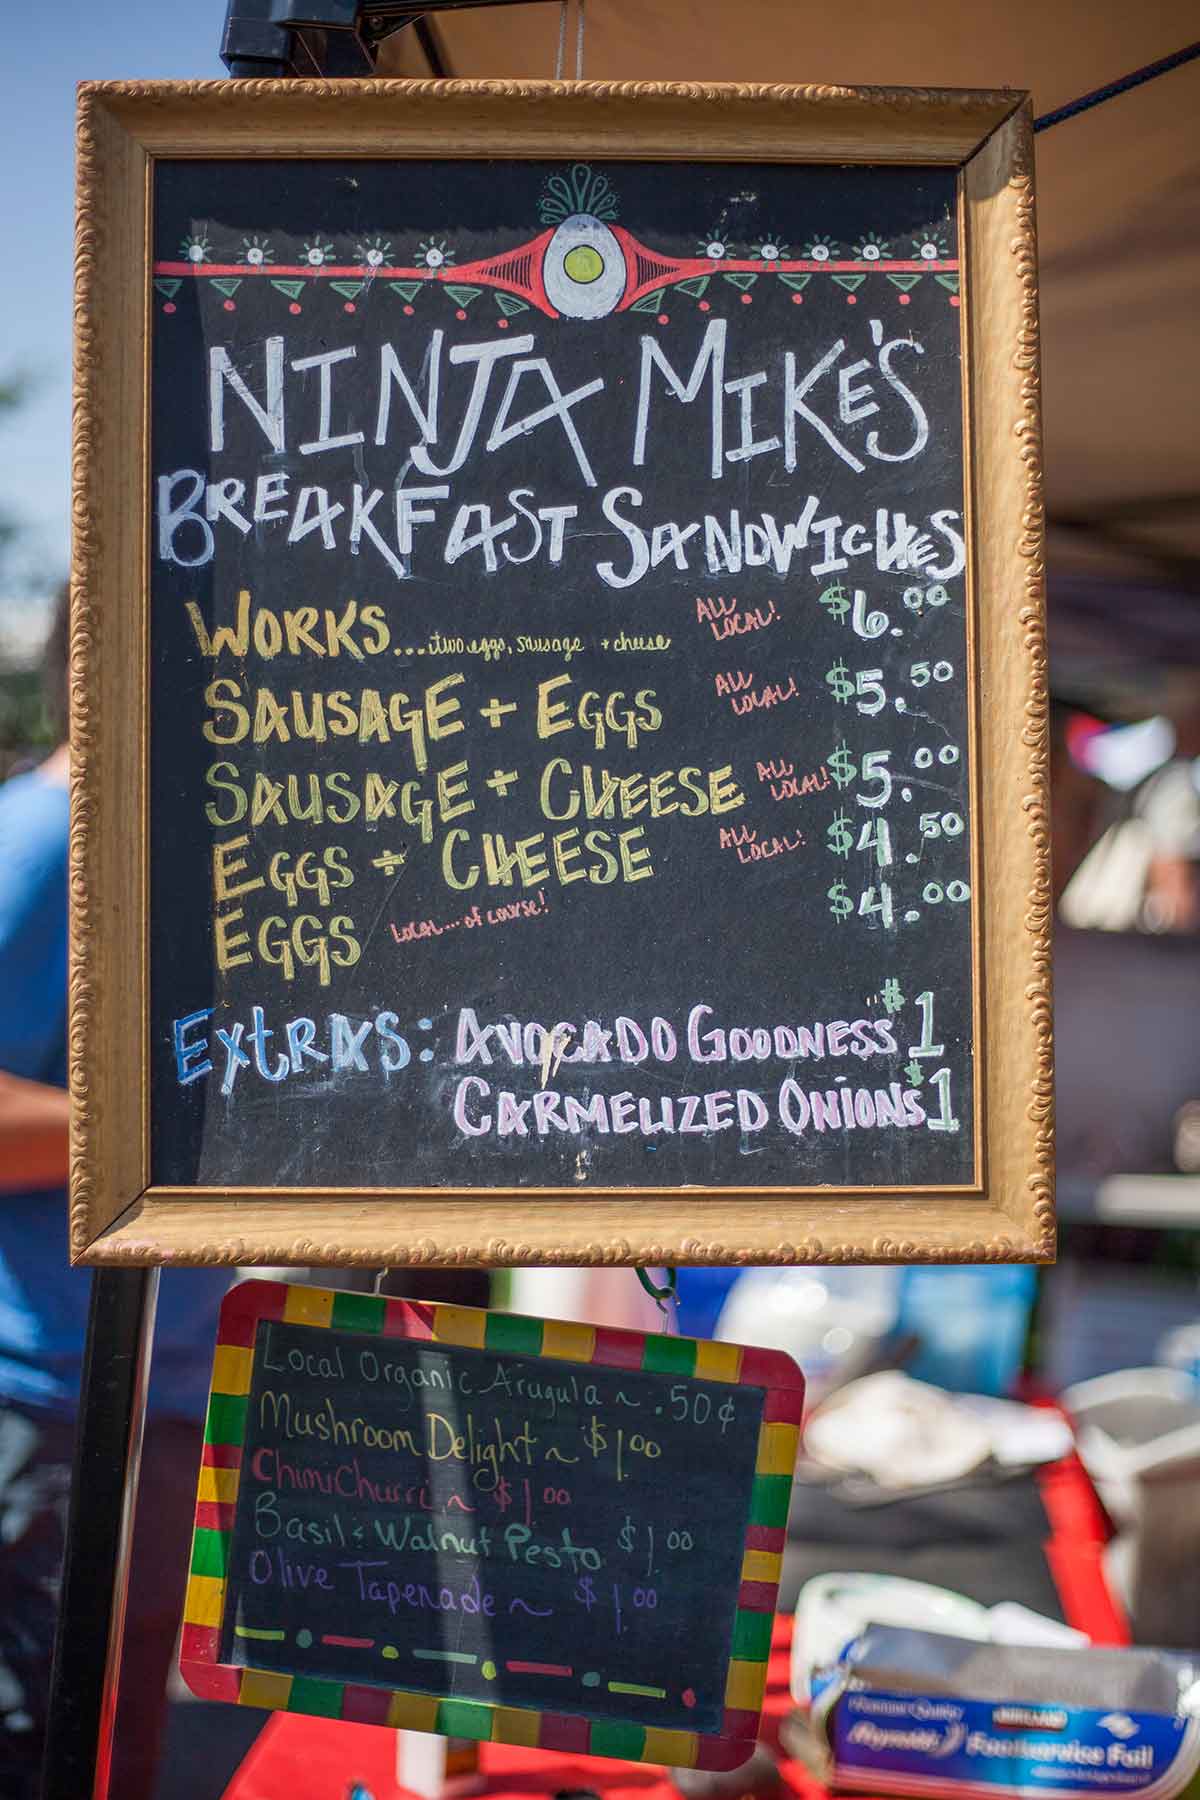 NINJA MIKE'S
BREAKFAST SANDWICHES
WORKS...two eggs, sausage + cheese ALL LOCAL! $6.00
SAUSAGE + EGGS ALL LOCAL! $5.50
SAUSAGE + CHEESE ALL LOCAL! $5.00
EGGS + CHEESE ALL LOCAL! $4.50
EGGS LOCAL...of course! $4.00
EXtRAS: AVOCADO GOODNESS $1
CARMELIZED ONiONS $1
Local Organic Arugula ~ .50¢
Mushroom Delight ~ $1.00
ChimiChurri ~ $1.00
Basil & Walnut Pesto $1.00
Olive Tapenade ~ $1.00
Reynolds
Foodservice Foil